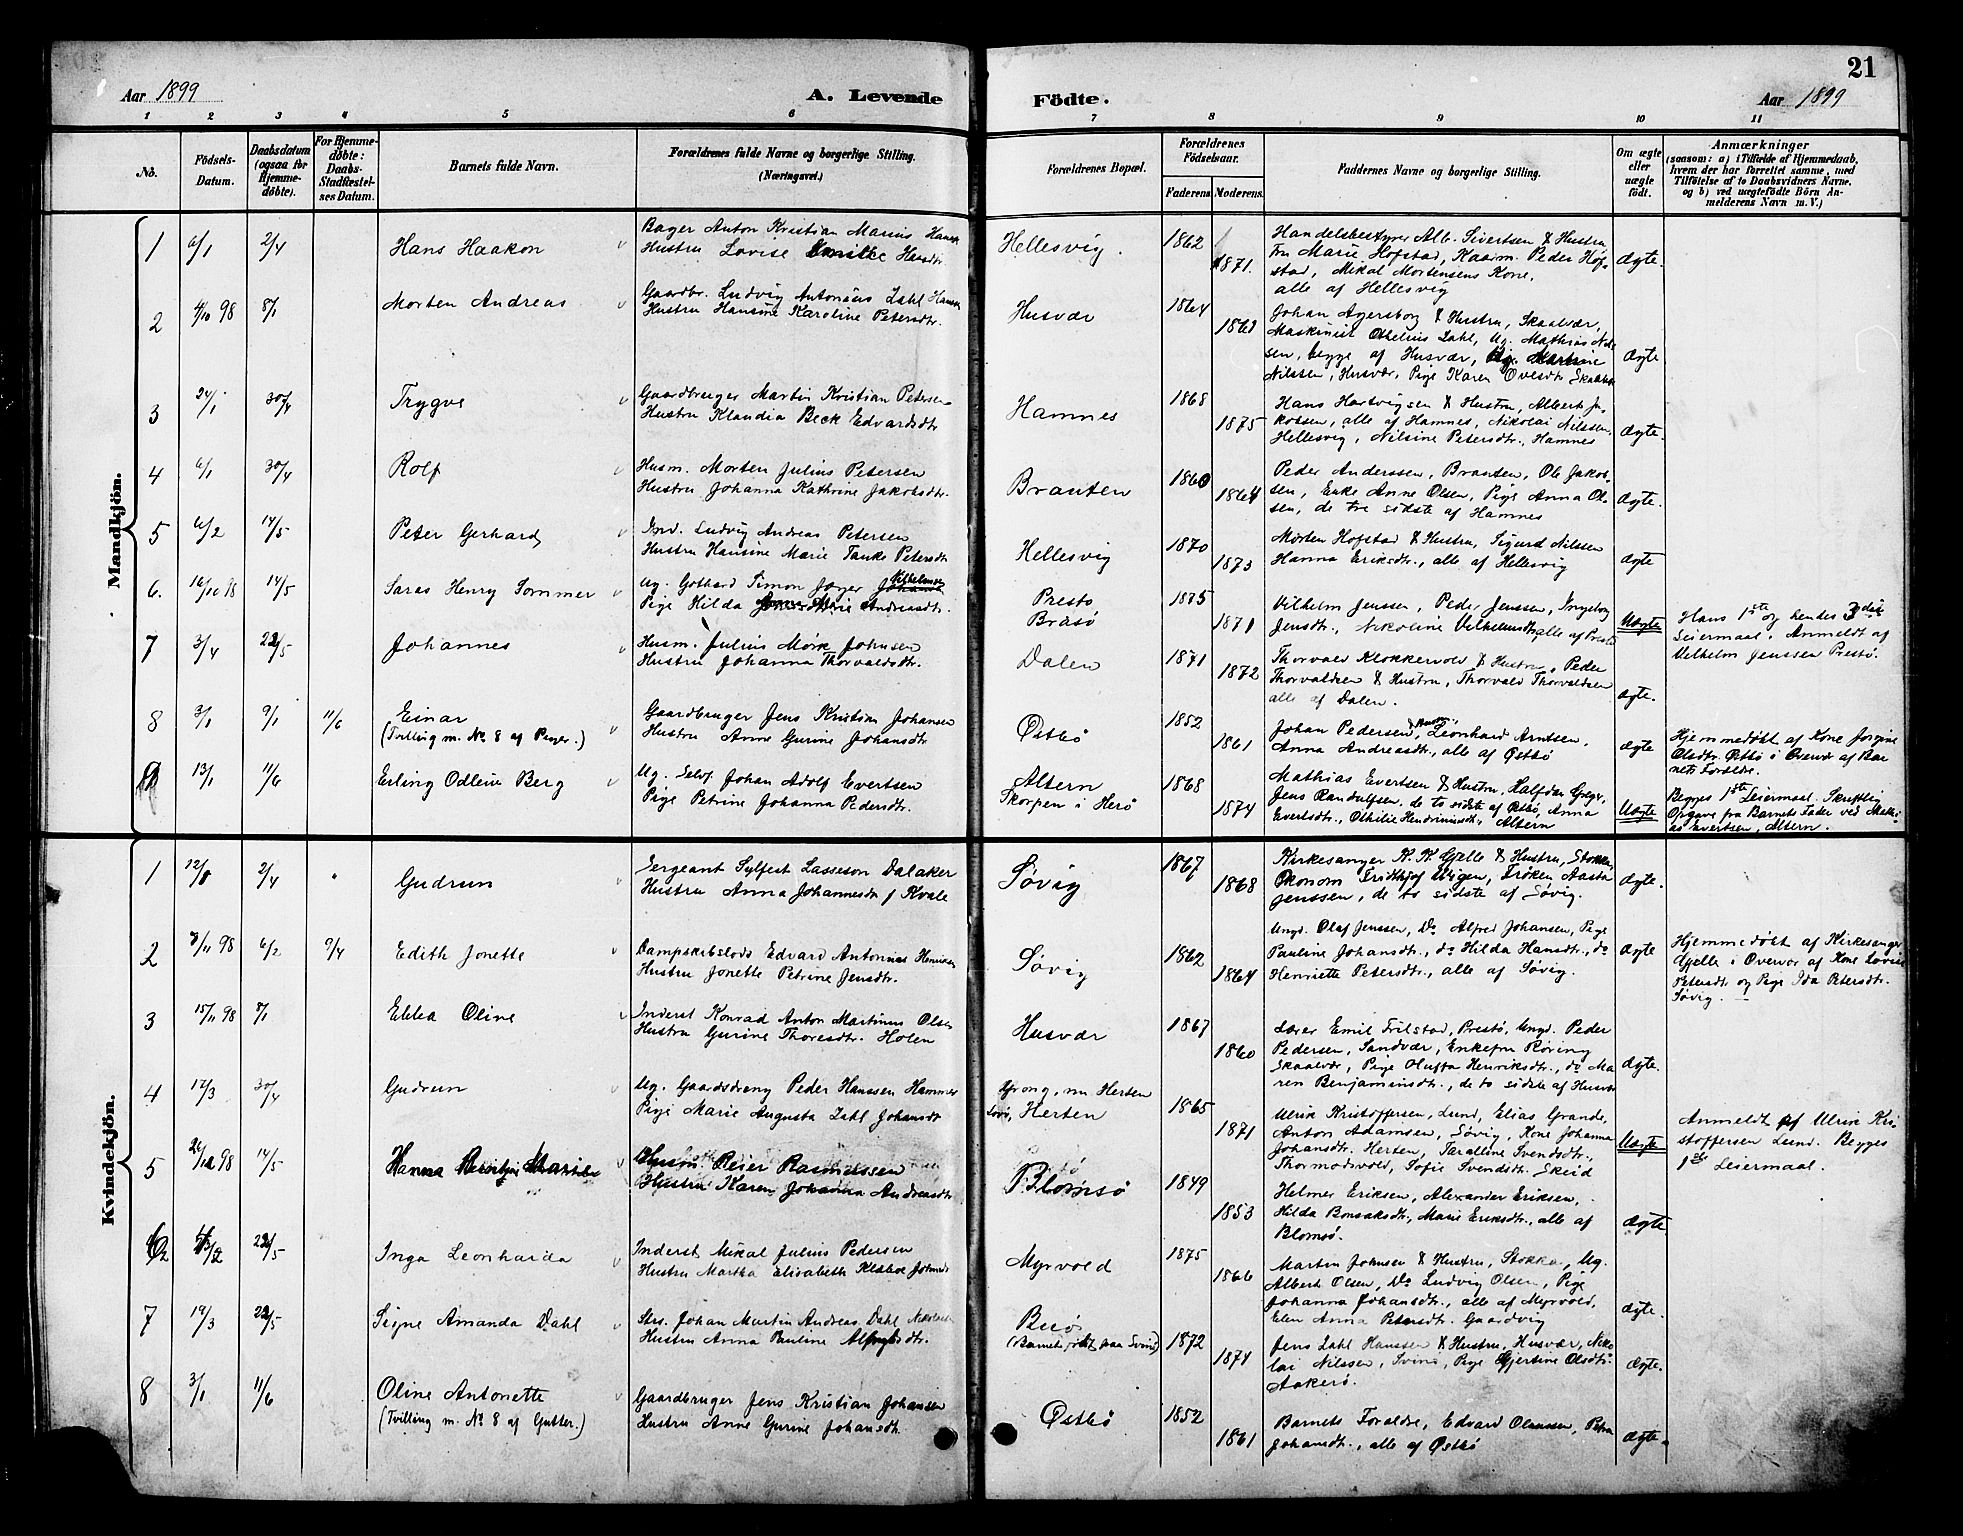 21
Aar 1899 A. Levende Födte. Aar 1899
1 2 3 4 5 6 7 8 9 10 11
No.
Födsels-Datum.
Daabsdatum (ogsaa for Hjemme-döbte).
For Hjemme-döbte: Daabs-Stadfæstel-ses Datum.
Barnets fulde Navn.
Forældrenes fulde Navne og borgerlige Stilling.
(Næringsvei.)
Forældrenes Bopæl.
Forældrenes Födselsaar.
Faderens. Moderens.
Faddernes Navne og borgerlige Stilling.
Om ægte eller uægte födt.
Anmærkninger
(saasom: a) i Tilfælde af Hjemmedaab,
hvem der har forrettet samme, med
Tilföielse af to Daabsvidners Navne,
og b) ved uægtefödte Börn An-
melderens Navn m. V.)
Mandkjön.
1 6/1 2/4 Hans Haakon
Bager Anton Kristian Marius
Hustru Lovise Hansdtr
Hellesvig. 1862 1871.
Handelsbestyrer Alb. Sivertsen & Hustru
Fru Marie Hofstad, Kaarm. Peder Hof-
stad, Mikal Mortensens Kone,
alle af Hellesvig
Ægte.
2 4/10 98 8/1 Morten Andreas
Gaardbr. Ludvig Antonius Zahl
Hustru Hansine Karoline Petersdtr.
Husvær 1864
Johan Agersborg & Hustru, Skaalvær,
Maskinist Othelius Zahl, Ug. Mathias Nils-
sen, begge af Husvær,
Nilssen, Husvær, Pige Karen Ovesdtr
Ægte
3 24/1 30/4 Trygve
Gaardbruger Martin Kristian Petersen
Hustru Klaudia Beck Edvardsdtr
Hamnes 1868 1875
Hans Hartvigsen & Hustru, Albert Ja-
kobsen, alle af Hamnes, Nikolai Nilssen,
Hellesvig, Nilsine Petersdtr., Hamnes
Ægte.
4 6/1 30/4 Rolf
Husm. Morten Julius Petersen
Hustru Johanna Kathrine Jakobsdtr.
Brauten 1860 1864
Peder Anderssen, Brauten, Ole Jakob-
sen, Enke Anne Olsen, Pige Anna Ol-
sen, de tre sidste af Hamnes
Ægte.
5 6/2 14/5 Peter Gerhard
Ludvig Andreas Petersen
Hustru Hansine Marie Tanke Petersdtr
Hellesvig 1870 1873
Morten Hofstad & Hustru, Sigurd Nilssen
Hanna Eriksdtr., alle af Hellesvig
Ægte
6. 16/10 98 14/5 Saras Henry Sommer
Ug. Gothard Simon Jøger Vilhelmsen
Pige Hilda Andreasdtr.
Prestø
Brasø
1875 1871
Vilhelm Jenssen, Peder Jenssen, Ingeborg
Jensdtr., Nikoline Vilhelmsdtr, alle af Prestø
Uægte
Hans 1ste og hendes 3die
Leiermaal. Anmeldt af
Vilhelm Jenssen Prestø.
7 3/4 22/5 Johannes
Husm. Julius Mørk Johnsen
Hustru Johanna Thorvaldsdtr.
Dalen 1871 1872
Thorvald Klokkervold & Hustru, Peder
Thorvaldsen & Hustru, Thorvald Thorvaldsen
alle af Dalen.
Ægte.
8 3/1 9/1 11/6 Einar
(Tvilling m. No 8 af Piger.)
Gaardbruger Jens Kristian Johansen
Hustru Anne Gurine Johansdtr
Østbø 1852 1861
Johan Pedersen, Hustru, Leonhard Arntsen,
Anna Andreasdtr., alle af Østbø
Ægte
Hjemmedøbt af Kone Jorgine
Olsdtr. Østbø i Overvær af Bar-
nets Forældre.
9 13/1 11/6 Erling Odleiv Berg
Ug. Selvf. Johan Adolf Evertsen
Pige Petrine Johanna Pedersdtr.
Altern
Skorpen i Herø
1868 1874
Mathias Evertsen & Hustru, Halfdan
Jens Randulfsen, de to sidste af Østbø, Anna
Evertsdtr., Othilie Altern
Uægte
Begges 1ste Leiermaal. Skriftlig
Opgave fra Barnets Fader ved Mathi-
as Evertsen, Altern.
Kvindekjön.
1 12/8 2/4 Gudrun
Sergeant Sylfest Lasseson Dalaker
Hustru Anna Johannesdtr f Kvale
Søvig 1867 1868
Kirkesanger K. K. Gjelle & Hustru, Stokka,
Økonom Fridthjof Wigen, Frøken Aasta
Jenssen, de to sidste af Søvig.
Ægte.
2 3/11 98 6/2 9/4 Edith Jonette
Dampskibslods Edvard Antonius
Hustru Jonette Petrine Jensdtr.
Søvig 1862 1864
Ungk. Olaf Jenssen, Do Alfred Johansen, Pige
Pauline Johansdtr., do Hilda Hansdtr., do
Henriette Petersdtr., alle af Søvig.
Ægte
Hjemmedøbt af Kirkesanger
Gjelle i Overvær af Kone Lovise
Petersdtr. og Pige Ida Petersdtr.
Søvig.
3 15/11 98 8/1 Ebba Oline
Inderst Konrad Anton Martinus Olsen
Hustru Gurine Thoresdtr. Holen
Husvær 1867 1860
Lærer Emil Frilstad, Prestø, Ungk. Peder
Pedersen, Sandvær, Enkefru Røring
Skaalvær, Pige Oluffa Henriksdtr., do Ma-
ren Benjaminsdtr., de to sidste af Husvær
Ægte.
4 12/3 30/4 Gudrun
Ug. Gaardsdreng Peder Hanssen Hammer
Pige Marie Augusta Zahl Johansdt
Grong, nu Herten
Søvig, Herten
1865 1871
Ulrik Kristoffersen, Lund, Elias Grande,
Anton Adamsen, Søvig, Kone Johanna
Johansdtr. Herten, Taralline Svendsdtr.,
Thormodsvold, Sofie Svendsdtr. Skeid
Uægte
Anmeldt af Ulrik Kri-
stoffersen Lund. Begges
1ste Leiermaal.
5 26/12 98 14/5 Hanna Marie
Husm. Peier Rasmussen
Hustru Karen Johanna Andreasdtr
Blomsø 1849 1853
Helmer Eriksen, Alexander Eriksen,
Hilda Bonsaksdtr., Marie Eriksdtr., alle af
Blomsø.
Ægte
6 22/5 Inga Leonharda
Inderst Mikal Julius Pedersen
Hustru Martha Elisabeth Klæboe
Myrvold 1875 1866
Martin Johnsen & Hustru, Stokka, Ug.
Albert Olsen, Do Ludvig Olsen, Pige
Johanna Johansdtr., alle af Myrvold,
Elen Anna Petersdtr. Gaardvig
Ægte.
7 19/3 22/5 Signe Amanda Dahl
Johan Martin Andreas Dahl
Hustru Anna Pauline
(Barnet født paa Svinø) 1872 1874
Jens Zahl Hanssen & Hustru, Husvær, Niko-
lai Nilssen, Svinø, Pige Gjertine Olsdtr.
Aakerø.
Ægte.
8 3/1 11/6 Oline Antonette
(Tvilling m. No 8 af Gutter.)
Gaardbruger Jens Kristian Johansen
Hustru Anne Gurine Johansdtr.
Østbø 1852 1861
Barnets Forældre, Edvard Olaussen, Petra
Johansdtr., alle af Østbø
Ægte.